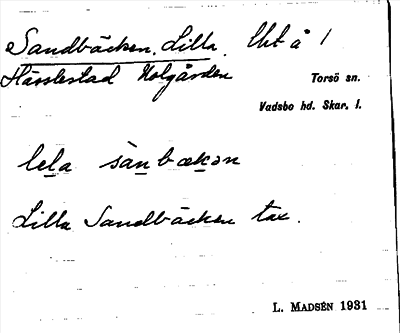 Sandbäcken, Lilla, lht å 1
Hässlestad Nolgården Torsö sn.
Vadsbo hd. Skar. l.
lela sànbækən
Lilla Sandbäcken tax.
L. MADSÉN 1931